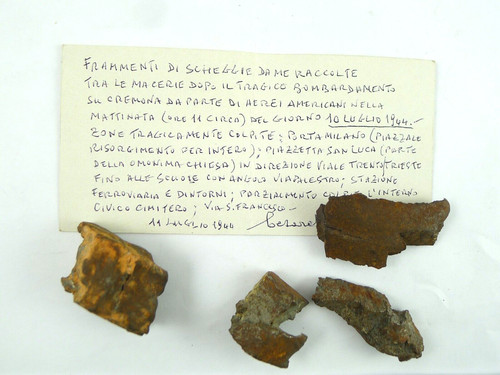 FRAMMENTI DI SCHEGGIE DA ME RACCOLTE
TRA LE MACERIE DOPO IL TRAGICO BOMBARDAMENTO
SU CREMONA DA PARTE DI AEREI AMERICANI NELLA
MATTINATA (ORE 11 CIRCA) DEL GIORNO 10 LUGLIO 1944.-
ZONE TRAGICAMENTE COLPITE: PORTA MILANO (PIAZZALE
RISORGIMENTO PER INTERO); PIAZZETTA SAN LUCA (PARTE
DELLA OMONIMA CHIESA) IN DIREZIONE VIALE TRENTO/TRIESTE
FINO ALLE SCUOLE CON ANGOLO VIA PALESTRO; STAZIONE
FERROVIARIA E DINTORNI; PARZIALMENTE L'INTERNO
CIVICO CIMITERO; VIA S. FRANCESCO-
11 LUGLIO 1944